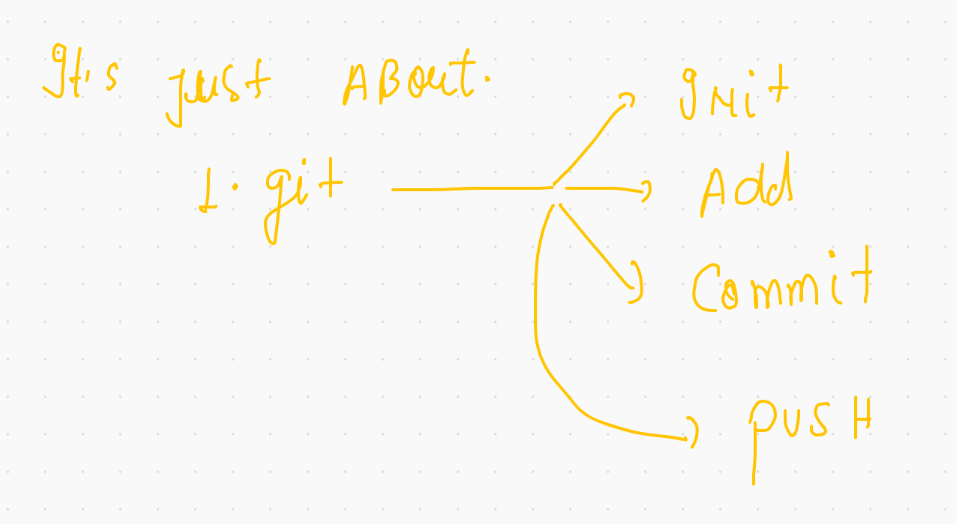 It's just ABout.
1. git
Init
Add
Commit
pusH